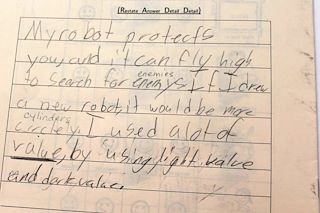 (Restate Answer Detail Detail)
My robot protects
you, and it can fly high
enemies
to search for enemys. If I drew
a new robot, it would be more
cylinders
circlely. I used a lot of
value, by using, light value
and dark value.